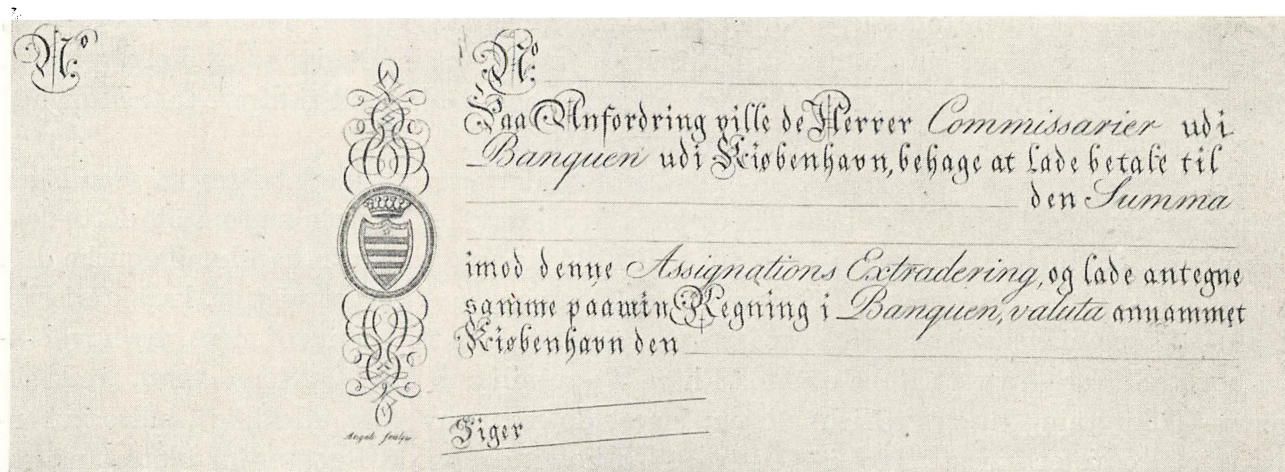 No
No
Paa Anfordring ville de Herrer Commissarier udi
Banquen udi Kiøbenhavn, behage at lade betale til
den Summa
imod denne Assignations Extradering, og lade antegne
samme paa min Regning i Banquen, valuta annammet
Kiøbenhavn den
Siger